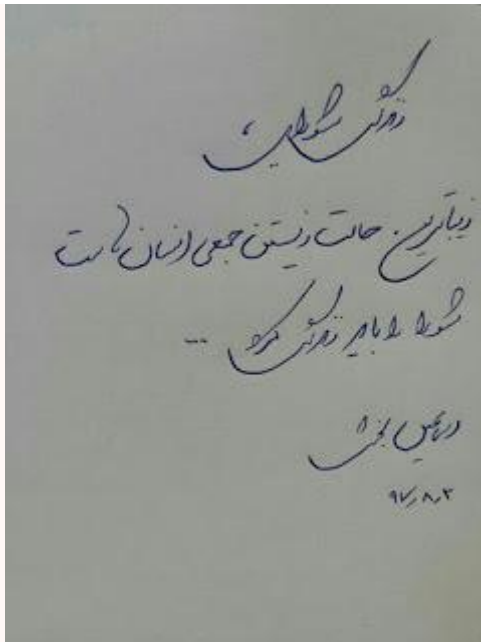 زندگی شورایی،
زیباترین حالت زیستن جمعی انسان هاست
شورا را باید زندگی کرد ...
اسماعیل بخشی
۹۷٫۸٫۳